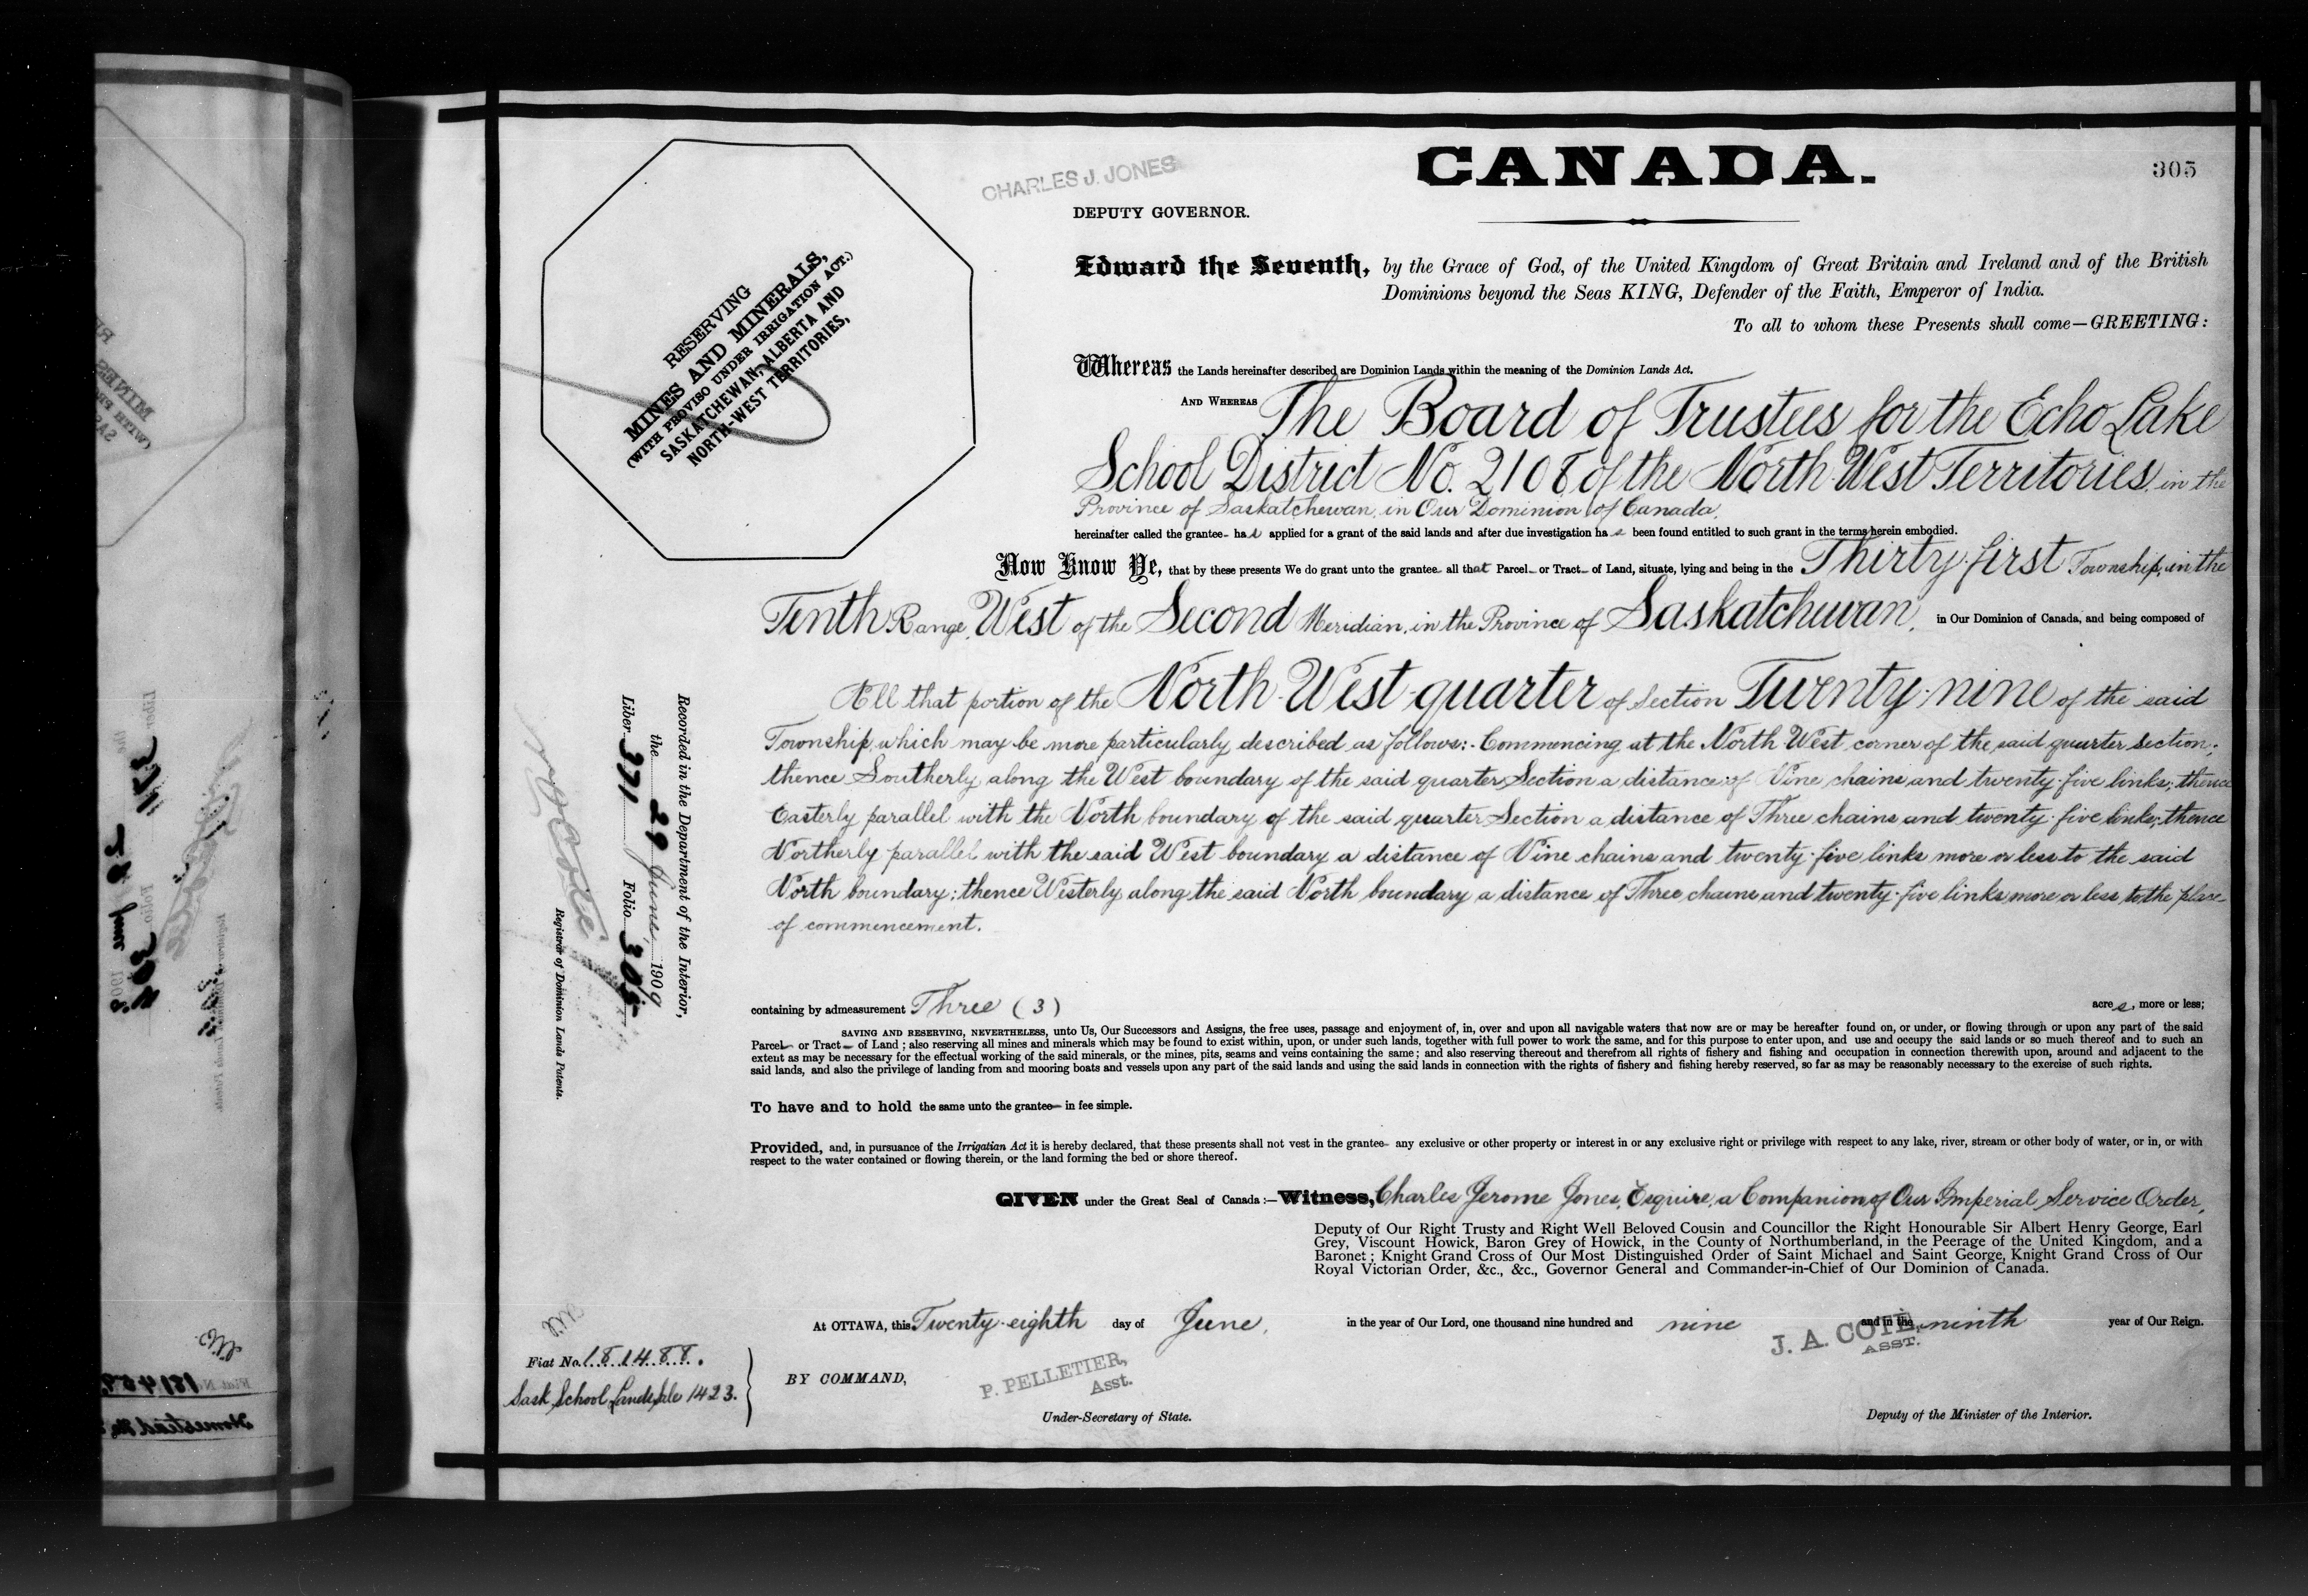 CANADA.
305
CHARLES J. JONES
DEPUTY GOVERNOR.
Edward the Seventh, by the Grace of God, of the United Kingdom of Great Britain and Ireland and of the British
Dominions beyond the Seas KING, Defender of the Faith, Emperor of India.
To all to whom these Presents shall come—GREETING:
RESERVING
MINES AND MINERALS,
(WITH PROVISO UNDER IRRIGATION ACT.)
SASKATCHEWAN, ALBERTA AND
NORTH-WEST TERRITORIES,
Whereas the Lands hereinafter described are Dominion Lands within the meaning of the Dominion Lands Act.
AND WHEREAS The Board of Trustees for the Echo Lake
School District No. 2108 of the North West Territories, in the
Province of Saskatchewan, in Our Dominion of Canada,
hereinafter called the grantee- has applied for a grant of the said lands and after due investigation has been found entitled to such grant in the terms herein embodied.
Now Know Ye, that by these presents We do grant unto the grantee- all that Parcel- or Tract- of Land, situate, lying and being in the Thirty-first Township, in the
Tenth Range, West of the Second Meridian, in the Province of Saskatchewan, in Our Dominion of Canada, and being composed of
All that portion of the North-West-quarter of Section Twenty-nine of the said
Township, which may be more particularly described as follows:- Commencing at the North West corner of the said quarter Section;
thence Southerly along the West boundary of the said quarter Section a distance of Nine chains and twenty-five links; thence
Easterly parallel with the North boundary of the said quarter Section a distance of Three chains and twenty-five links; thence
Northerly parallel with the said West boundary a distance of Nine chains and twenty-five links more or less to the said
North boundary; thence Westerly along the said North boundary a distance of Three chains and twenty-five links more or less to the place
of commencement.
Recorded in the Department of the Interior,
the 29 June, 1909
Liber 371 Folio 305
Registrar of Dominion Lands Patents.
containing by admeasurement Three (3) acres, more or less;
SAVING AND RESERVING, NEVERTHELESS, unto Us, Our Successors and Assigns, the free uses, passage and enjoyment of, in, over and upon all navigable waters that now are or may be hereafter found on, or under, or flowing through or upon any part of the said
Parcel- or Tract- of Land; also reserving all mines and minerals which may be found to exist within, upon, or under such lands, together with full power to work the same, and for this purpose to enter upon, and use and occupy the said lands or so much thereof and to such an
extent as may be necessary for the effectual working of the said minerals, or the mines, pits, seams and veins containing the same; and also reserving thereout and therefrom all rights of fishery and fishing and occupation in connection therewith upon, around and adjacent to the
said lands, and also the privilege of landing from and mooring boats and vessels upon any part of the said lands and using the said lands in connection with the rights of fishery and fishing hereby reserved, so far as may be reasonably necessary to the exercise of such rights.
To have and to hold the same unto the grantee- in fee simple.
Provided, and, in pursuance of the Irrigatian Act it is hereby declared, that these presents shall not vest in the grantee- any exclusive or other property or interest in or any exclusive right or privilege with respect to any lake, river, stream or other body of water, or in, or with
respect to the water contained or flowing therein, or the land forming the bed or shore thereof.
GIVEN under the Great Seal of Canada:—Witness, Charles Jerome Jones, Esquire, a Companion of Our Imperial Service Order,
Deputy of Our Right Trusty and Right Well Beloved Cousin and Councillor the Right Honourable Sir Albert Henry George, Earl
Grey, Viscount Howick, Baron Grey of Howick, in the County of Northumberland, in the Peerage of the United Kingdom, and a
Baronet; Knight Grand Cross of Our Most Distinguished Order of Saint Michael and Saint George, Knight Grand Cross of Our
Royal Victorian Order, &c., &c., Governor General and Commander-in-Chief of Our Dominion of Canada.
At OTTAWA, this Twenty-eighth day of June, in the year of Our Lord, one thousand nine hundred and nine and in the ninth year of Our Reign.
J. A. COTÉ,
ASST.
Fiat No. 181488.
Sask School Lands Sale 1423.
BY COMMAND,
P. PELLETIER,
Asst.
Under-Secretary of State.
Deputy of the Minister of the Interior.